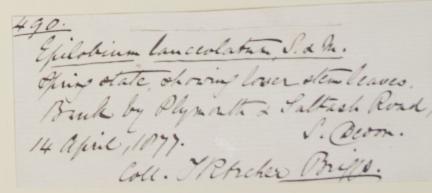 490.
Epilobium lanceolatum, S. & M.
Spring state, showing lower stem leaves.
Bank by Plymouth & Saltash Road,
S. Devon.
14 April, 1877.
Coll. T R Archer Briggs.